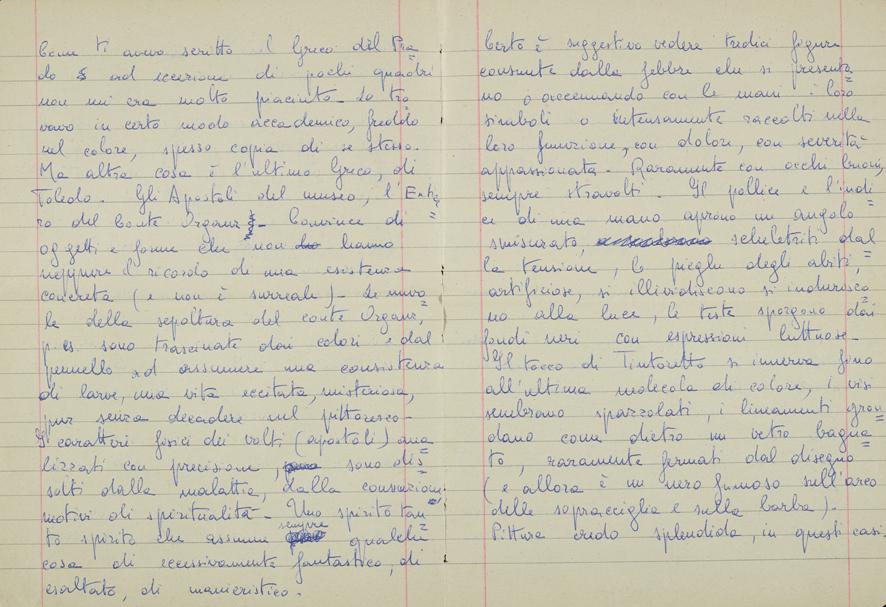 Come ti avevo scritto il Greco del Pra=
do ad eccezione di pochi quadri
non mi era molto piaciuto. Lo tro
vavo in certo modo accademico, freddo
nel colore, spesso copia di se stesso.
Ma altra cosa è l'ultimo Greco, di
Toledo. Gli Apostoli del museo, l'Enter=
ro del Conte Organz. Convince di
oggetti e forme che non hanno
neppure il ricordo di una esistenza
concreta (e non è surreale). Le nuvo=
le della sepoltura del conte Organz,
p. es. sono trascinate dai colori e dal
pennello ad assumere una consistenza
di larve, una vita eccitata, misteriosa,
pur senza decadere nel pittoresco.
I caratteri fisici dei volti (apostoli) ana=
lizzati con precisione, sono dis=
solti dalla malattia, dalla consunzione
motivi di spiritualità. Uno spirito tan=
to spirito che assume sempre qualche
cosa di eccessivamente fantastico, di
esaltato, di manieristico.
Certo è suggestivo vedere tredici figure
consunte dalla febbre che si presenta=
no o accennando con le mani i loro
simboli o intensamente raccolti nella
loro funzione, con dolore, con severità
appassionata. Raramente con occhi buoni,
sempre stravolti. Il pollice e l'indi=
ce di una mano aprono un angolo
smisurato, scheletriti dal
la tensione, le pieghe degli abiti,
artificiose, si illividiscono si indurisco=
no alla luce, le teste sporgono dai
fondi neri con espressioni luttuose.
Il tocco di Tintoretto si innerva fino
all'ultima molecola di colore, i visi
sembrano spazzolati, i lineamenti gron=
dano come dietro un vetro bagna=
to, raramente fermati dal disegno
(e allora è un nero fumoso sull'arco
delle sopracciglia e sulla barba).
Pittura credo splendida, in questi casi.